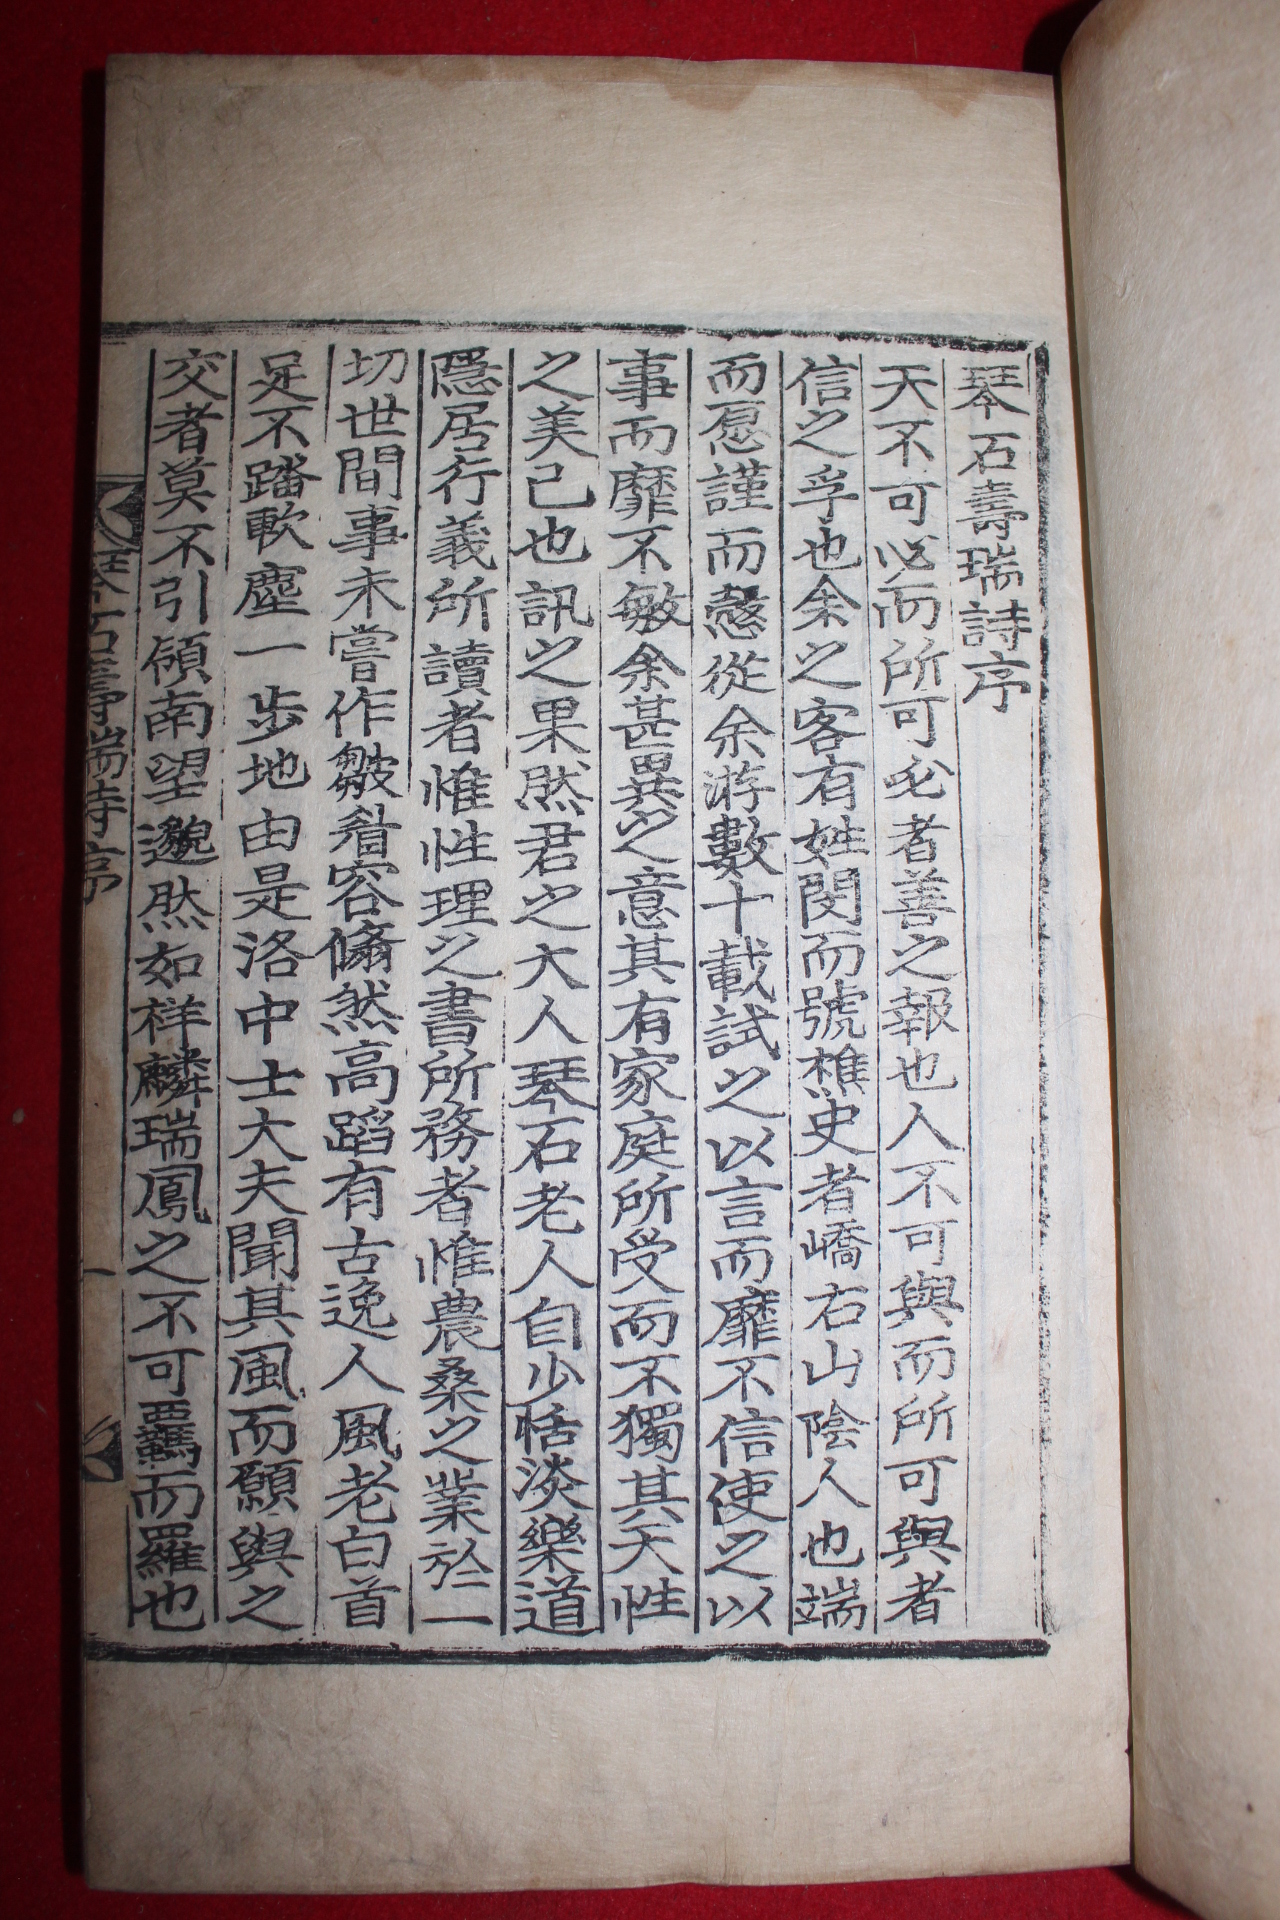 琴石壽瑞詩序
天不可必而所可必者善之報也人不可與而所可與者
信之孚也余之客有姓閔而號樵史者嶠右山陰人也端
而愿謹而慤從余游數十載試之以言而靡不信使之以
事而靡不敏余甚異之意其有家庭所受而不獨其天性
之美已也訊之果然君之大人琴石老人自少恬淡樂道
隱居行義所讀者惟性理之書所務者惟農桑之業於一
切世間事未嘗作皺眉容翛然高蹈有古逸人風老白首
足不踏軟塵一步地由是洛中士大夫聞其風而願與之
交者莫不引領南望邈然如祥麟瑞鳳之不可羈而羅也
琴石壽瑞詩序 一